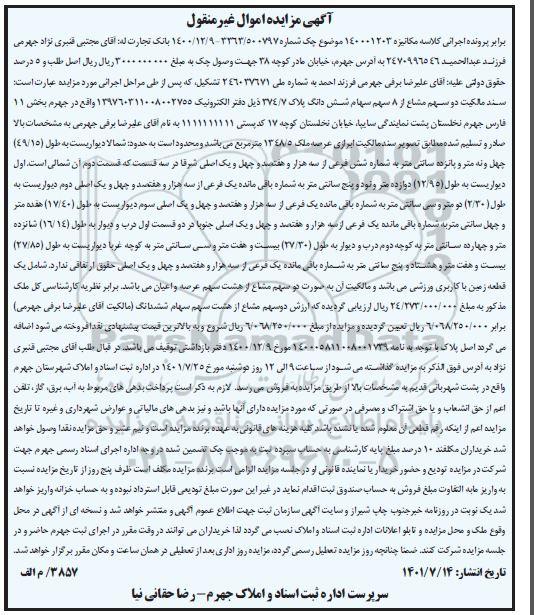 آگهی مزایده اموال غیرمنقول
برابر پرونده اجرائی کلاسه مکانیزه ۱۴۰۰۰۱۲۰۳ موضوع چک شماره ۳۳۶۳/۵۰۰۷۹۷-۱۴۰۰/۱۲/۹ بانک تجارت له: آقای مجتبی قنبری نژاد جهرمی
فرزند عبدالحمید ۲۴۷۰۹۹۶۵۴۶ به آدرس جهرم، خیابان مادر کوچه ۳۸ جهت وصول چک به مبلغ ۳۰۰۰۰۰۰۰۰۰ ریال ریال اصل طلب و ۵ درصد
حقوق دولتی علیه: آقای علیرضا برفی جهرمی فرزند احمد به شماره ملی ۲۴۶۰۳۷۶۷۱ تشکیل، که پس از طی مراحل اجرائی مورد مزایده عبارت است:
سند مالکیت دو سهم مشاع از ۸ سهم سهام شش دانگ پلاک ۳۷۴/۷ ذیل دفتر الکترونیک ۱۳۹۷۶۰۳۱۱۰۰۸۰۰۲۷۵۵ واقع در جهرم بخش ۱۱
فارس جهرم نخلستان پشت نمایندگی سایپا، خیابان نخلستان کوچه ۱۷ کدپستی ۱۱۱۱۱۱۱۱۱۱ به نام آقای علیرضا برفی جهرمی به مشخصات بالا
صادر و تسلیم شده مطابق تصویر سند مالکیت ابرازی عرصه ملک ۱۳۴۸/۵ مترمربع می باشد و محدود است به حدود: شمالا دیواریست به طول (۴۹/۱۵)
چهل و نه متر و پانزده سانتی متر به شماره شش فرعی از سه هزار و هفتصد و چهل و یک اصلی شرقا در سه قسمت که قسمت دوم آن شمالی است. اول
دیواریست به طول (۱۲/۹۵) دوازده متر و نود و پنج سانتی متر به شماره باقی مانده یک فرعی از سه هزار و هفتصد و چهل و یک اصلی دوم دیواریست به
طول (۲/۳۰) دو متر و سی سانتی متر به شماره باقی مانده یک فرعی از سه هزار و هفتصد و چهل و یک اصلی سوم دیواریست به طول (۱۷/۴۰) هفده متر
و چهل سانتی متر به شماره باقی مانده یک فرعی از سه هزار و هفتصد و چهل و یک اصلی جنوبا در دو قسمت اول درب و دیوار به طول (۱۶/۱۴) شانزده
متر و چهارده سانتی متر به کوچه دوم درب و دیوار به طول (۲۷/۳۰) بیست و هفت متر و سی سانتی متر به کوچه غربا دیواریست به طول (۲۷/۸۵)
بیست و هفت متر و هشتاد و پنج سانتی متر به شماره باقی مانده یک فرعی از سه هزار و هفتصد و چهل و یک اصلی حقوق ارتفاقی ندارد. شامل یک
قطعه زمین با کاربری ورزشی می باشد و مالکیت آن به صورت دو سهم مشاع از هشت سهم عرصه و اعیان می باشد. برابر نظریه کارشناسی کل ملک
مذکور به مبلغ ۲۴/۲۷۳/۰۰۰/۰۰۰ ریال ارزیابی گردیده که ارزش دوسهم مشاع از هشت سهم سهام ششدانگ (مالکیت آقای علیرضا برفی جهرمی)
برابر ۶/۰۶۸/۲۵۰/۰۰۰ ریال تعیین گردیده و مزایده از مبلغ ۶/۰۶۸/۲۵۰/۰۰۰ ریال شروع و به بالاترین قیمت پیشنهادی نقدا فروخته می شود اضافه
می گردد اصل پلاک با توجه به نامه ۱۴۰۰۰۵۸۱۱۰۰۸۰۰۱۷۳۹ مورخ ۱۴۰۰/۱۲/۹ دفتر بازداشتی توقیف می باشد. در قبال طلب آقای مجتبی قنبری
نژاد به آدرس فوق الذکر به مزایده گذاشته می شود از ساعت ۹ الی ۱۲ روز دوشنبه مورخ ۱۴۰۱/۷/۲۵ در اداره ثبت اسناد و املاک شهرستان جهرم
واقع در پشت شهربانی قدیم به مشخصات بالا از طریق مزایده به فروش می رسد. لازم به ذکر است پرداخت بدهی های مربوط به آب، برق، گاز، تلفن
اعم از حق انشعاب و یا حق اشتراک و مصرفی در صورتی که مورد مزایده دارای آنها باشد و نیز بدهی های مالیاتی و عوارض شهرداری و غیره تا تاریخ
مزایده اعم از اینکه رقم قطعی آن معلوم شده یا نشده باشد کلیه هزینه های قانونی به عهده برنده مزایده است و نیم عشر و حق مزایده نقدا وصول خواهد
شد خریداران مکلفند ۱۰ درصد مبلغ پایه کارشناسی به حساب سپرده ثبت به موجب چک تضمین شده در وجه اداره اجرای اسناد رسمی جهرم جهت
شرکت در مزایده تودیع و حضور خریدار یا نماینده قانونی او در جلسه مزایده الزامی است برنده مزایده مکلف است ظرف پنج روز از تاریخ مزایده نسبت
به واریز مابه التفاوت مبلغ فروش به حساب صندوق ثبت اقدام نماید در غیر این صورت مبلغ تودیعی قابل استرداد نبوده و به حساب خزانه واریز خواهد
شد یک نوبت در روزنامه خبرجنوب چاپ شیراز و سایت آگهی سازمان ثبت جهت اطلاع عموم آگهی و منتشر خواهد شد و نسخه ای از آگهی در محل
وقوع ملک و محل مزایده و تابلو اعلانات اداره ثبت اسناد و املاک نصب می گردد لذا خریداران می توانند در وقت مقرر در اجرای ثبت جهرم حاضر و در
جلسه مزایده شرکت کنند. ضمنا چنانچه روز مزایده تعطیل رسمی گردد، مزایده روز اداری بعد از تعطیلی در همان ساعت و مکان مقرر برگزار خواهد شد.
تاریخ انتشار: ۱۴۰۱/۷/۱۴
۳۸۵۷/م الف
سرپرست اداره ثبت اسناد و املاک جهرم – رضا حقانی نیا